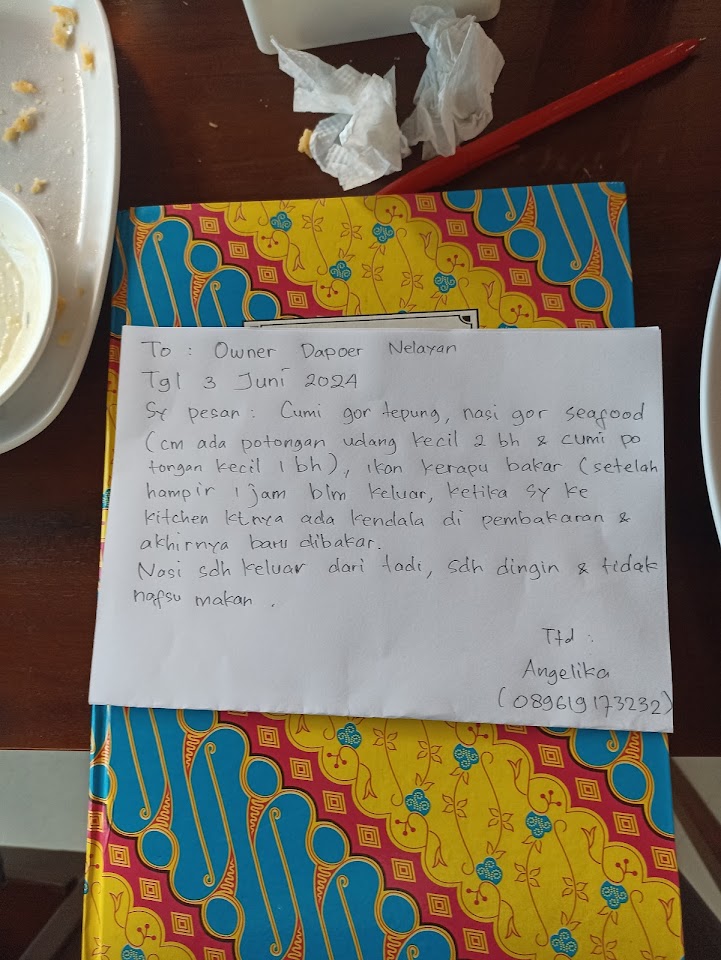 To : Owner Dapoer Nelayan
Tgl 3 Juni 2024
Sy pesan : Cumi gor tepung, nasi gor seafood
(cm ada potongan udang kecil 2 bh & cumi po
tongan kecil 1 bh), ikan kerapu bakar (setelah
hampir 1 jam blm keluar, ketika sy ke
kitchen ktnya ada kendala di pembakaran &
akhirnya baru dibakar.
Nasi sdh keluar dari tadi, sdh dingin & tidak
nafsu makan.
Ttd :
Angelika
(089619173232)